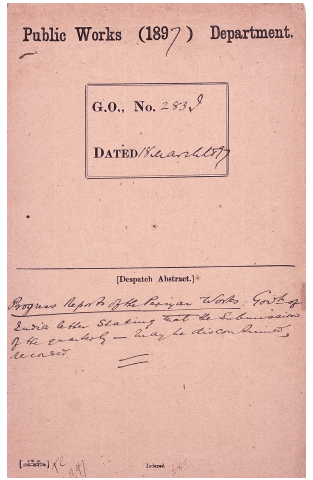 Public Works (1897) Department.
G.O., No. 283 I
DATED 18 March 1897
[Despatch Abstract.]
Progress Reports of the Periyar Works. Govt. of
India letter stating that the submission
of the quarterly — may be discontinued,
recorded
Indexed